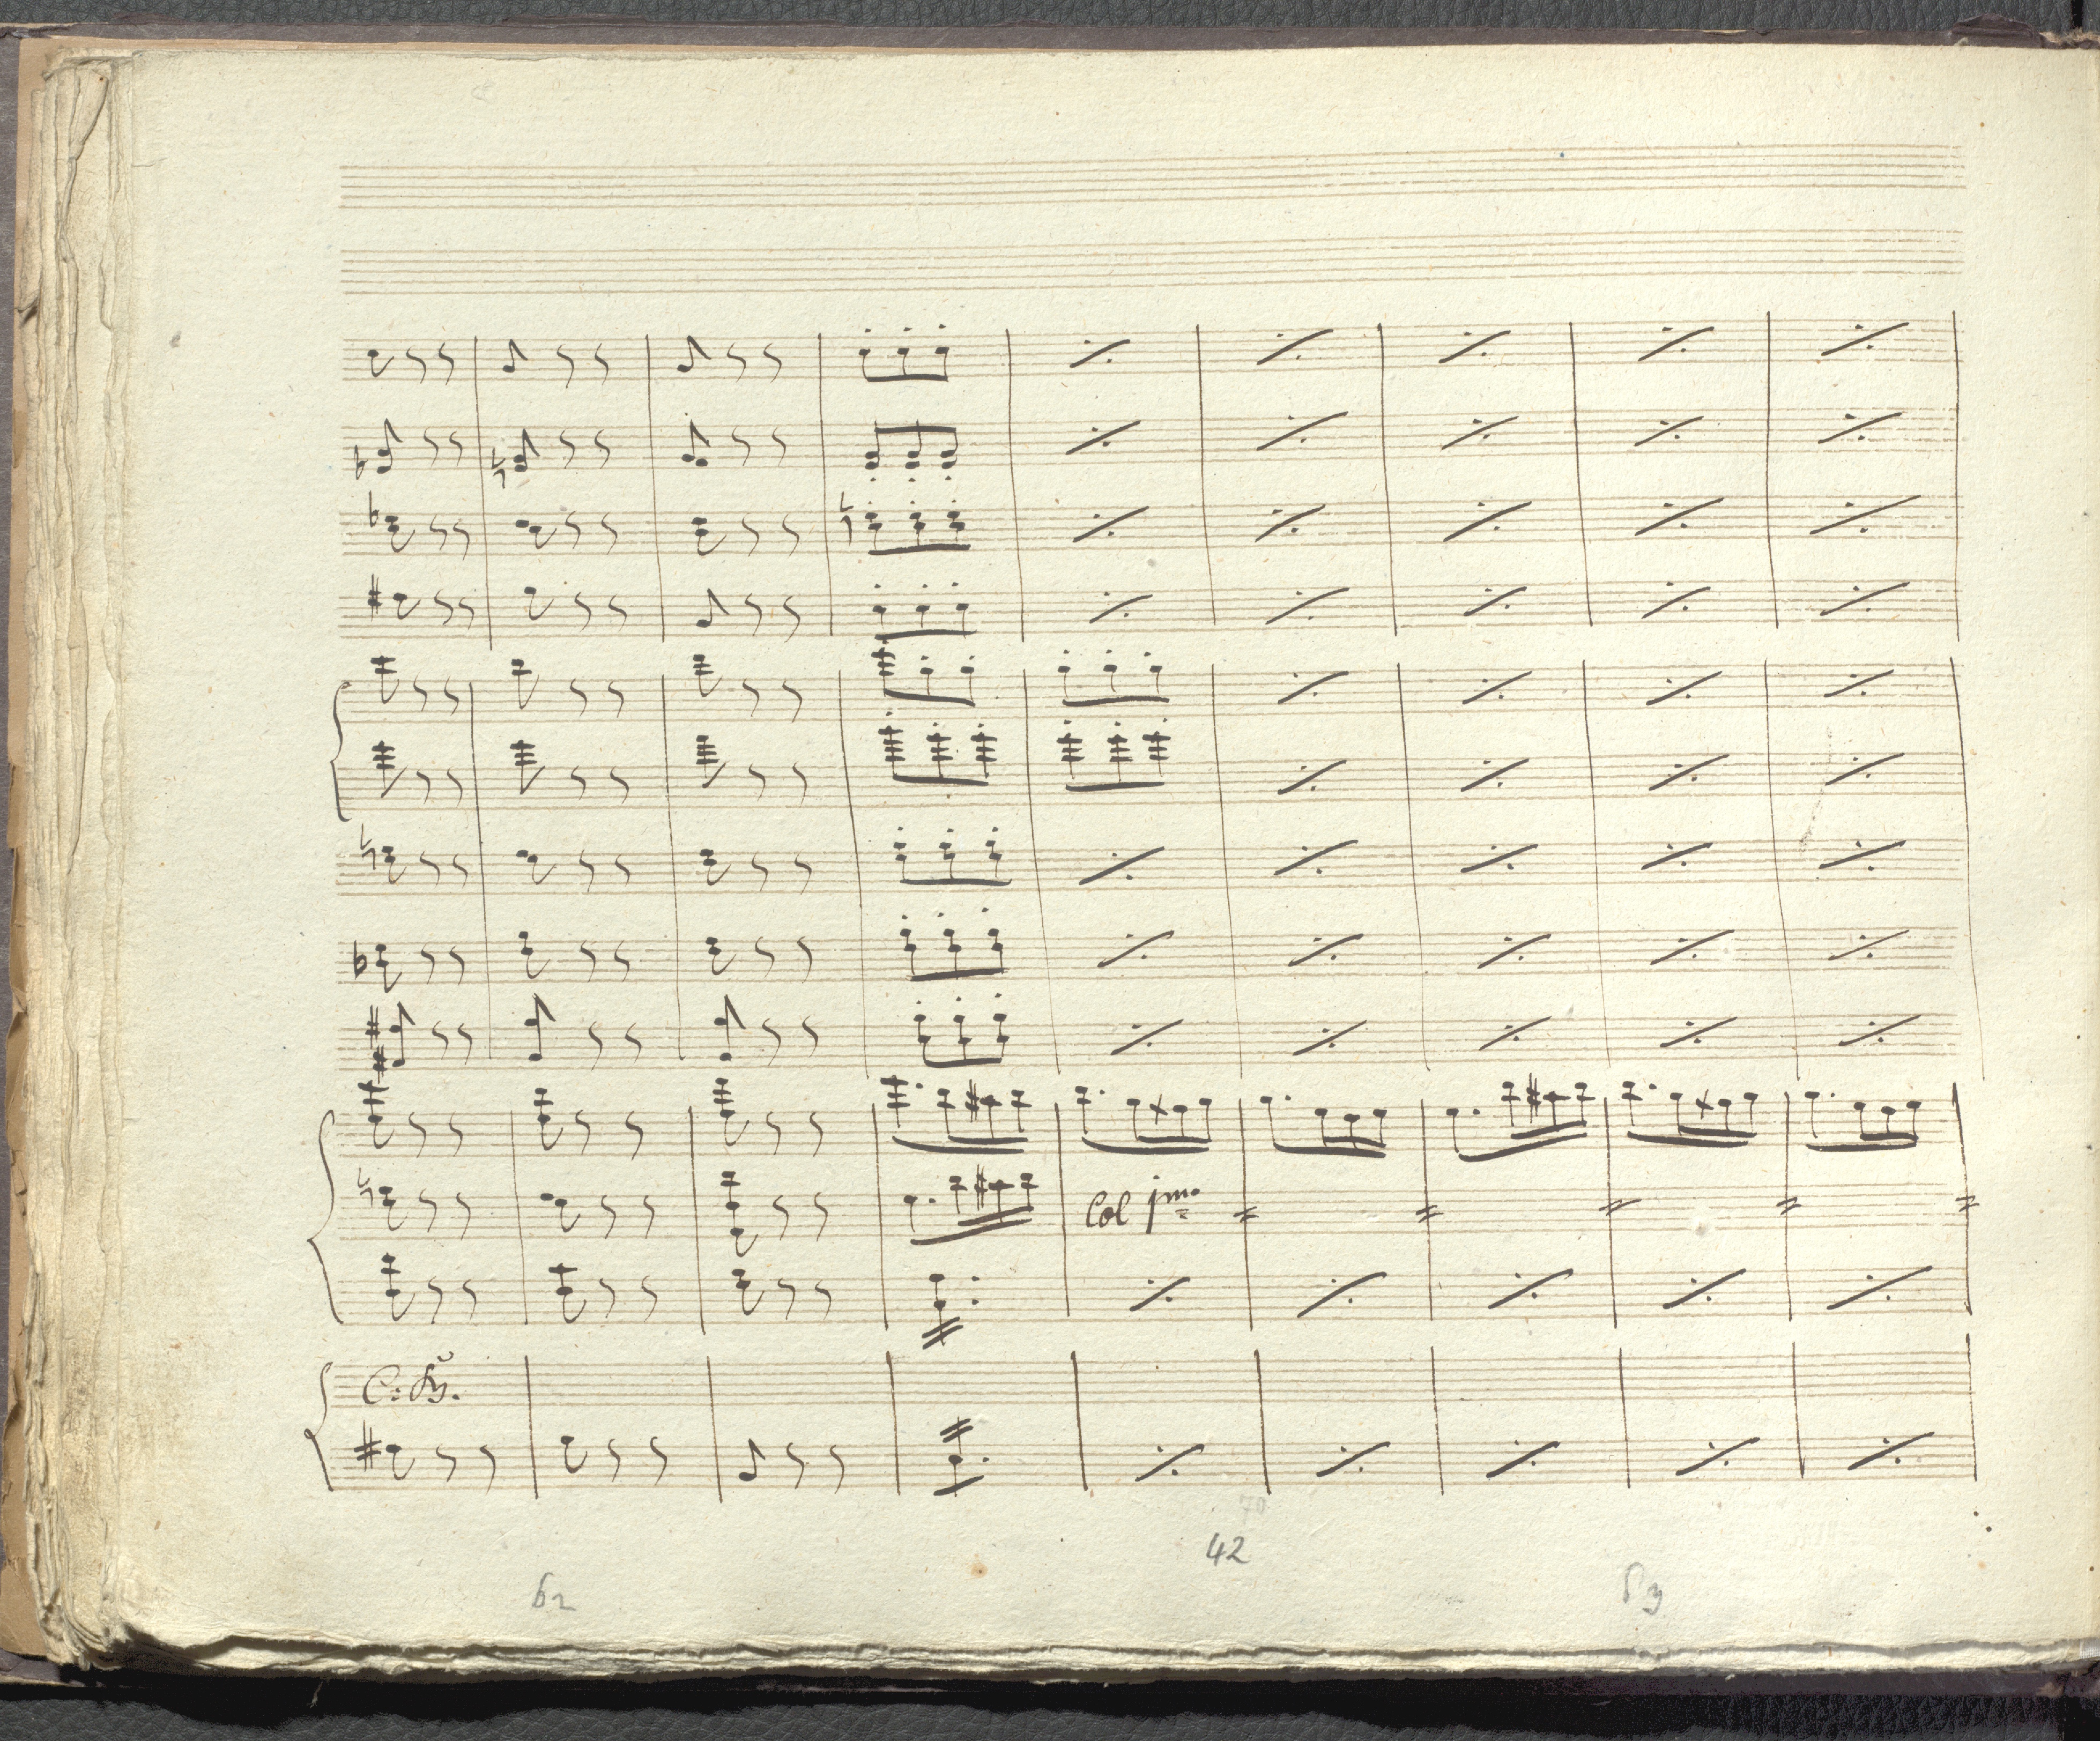 Col jmo
C: B.
70
42
62
63